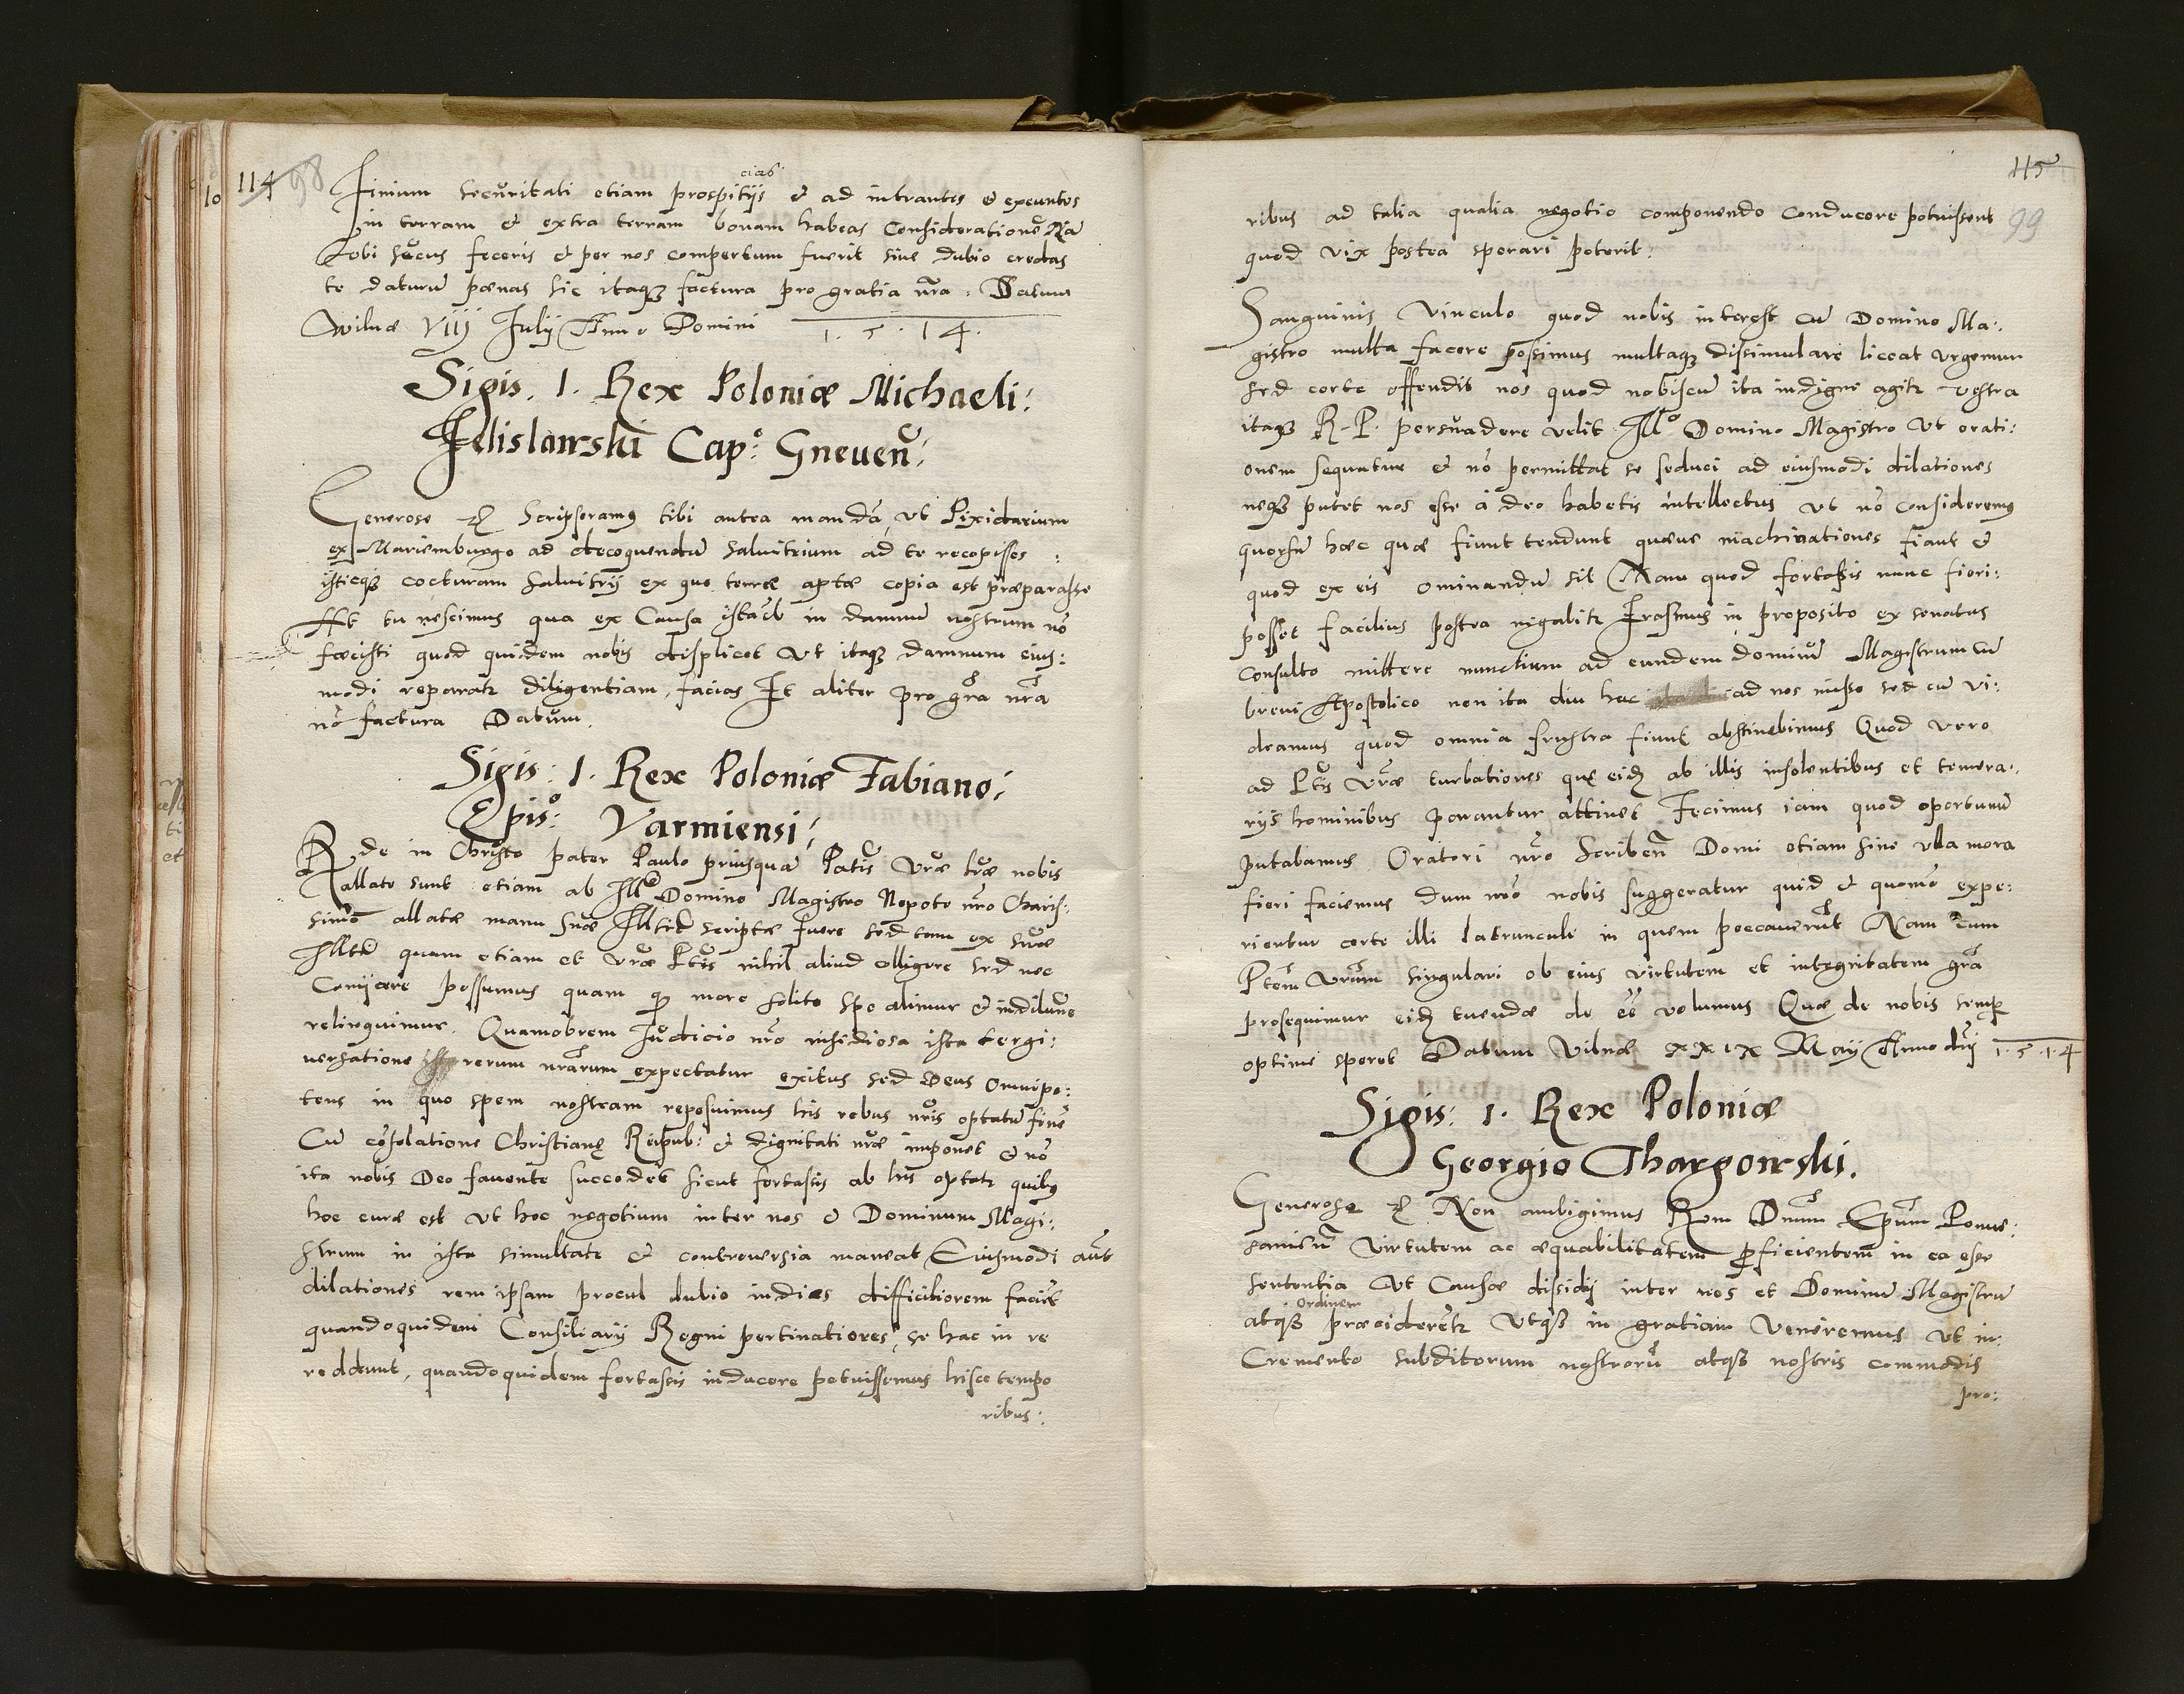 114 98
cias
Finium securitati etiam prospitijs & ad intrantes & exeuntes
in terram & extra terram bonam habeas Considerationẽ Nã
ubi secus feceris & per nos compertum fuerit sine dubio credas
te daturũ pœnas sic itaqꝫ factura pro gratia nr̃a. Datum
Wilnæ VIII July Anno Domini 1.5.14.
Sigis. 1. Rex Poloniæ Michaeli:
Felislawski Cap:º Gneueñ:
Generose Scripseramꝰ tibi antea mandã, vt Pixidarium
ex Mariemburgo ad decoquendũ salnitrium ad te recepisses:
isticqꝫ cocturam salnitrij ex quo terræ aptæ copia est præparasse
At tu nescimus qua ex Causa istud in damnũ nostrum nõ
fecisti quod quidem nobis displicet Vt itaqꝫ damnum eius:
modi reparatꝛ diligentiam, facias Et aliter pro gr̃a nr̃a
nõ factura Datum.
Sigis: 1. Rex Poloniæ Fabiano:
Epis:º Varmiensi:
Rde in Christo pater Paulo priusquã Patis Vr̃æ lr̃æ nobis
allate sunt etiam ab Illº Domino Magistro Nepote nr̃o Charis:
simo allatæ manu suæ Illtis scriptæ fuere sed tam ex suæ
Illtis quam etiam et vr̃æ Ptis nihil aliud elligere sed nec
Conijcere possumus quam ꝙ more solito spe alimur & in dilũne
relinquimur. Quamobrem Judicio nr̃o insidiosa ista tergi:
uersatione rerum nr̃arum expectatur exitus sed Deus Omnipo:
tens in quo spem nostram reposuimus his rebus nr̃is optatũ finẽ
Cũ cõsolatione Christianę Reipub: & dignitati nr̃æ imponet & nõ
ita nobis Deo fauente succedet sicut fortassis ab his optatꝛ quibꝰ
hoc curæ est vt hoc negotium inter nos & Dominum Magi:
strum in ista simultate & controuersia maneat Eiusmodi aũt
dilationes rem ipsam procul dubio indies difficiliorem faciũt
quandoquidem Consiliarij Regni pertinatiores, se hac in re
reddunt, quandoquidem fortassis inducere potuissemus hisce tempo
ribus:
115
99
ribus ad talia qualia negotio componendo conducere potuissent
quod vix postea sperari poterit:
Sanguinis Vinculo quod nobis interest cũ Domino Ma:
gistro multa facere possimus multaqꝫ dissimulare liceat vrgemur
sed certe offendit nos quod nobiscũ ita indigne agitꝛ vestra
itaqꝫ R. P. persuadere velit Illº Domino Magistro vt orati:
onem sequatur & nõ permittat se seduci ad eiusmodi dilationes
neqꝫ putet nos esse a deo habetis intellectus vt nõ consideremꝰ
quorsũ hæc quæ fiunt tendunt quæue machinationes fiant &
quod ex eis ominandũ sit Nam quod fortassis nunc fieri:
posset facilius postea nigabitꝛ Erasmus in proposito ex senatus
Consulto mittere nunctium ad eundem dominũ Magistrum cũ
breui Apostolico non ita diu huc ad nos misso sed cũ vi:
deamus quod omnia frustra fiunt abstinebimus Quod vero
ad Ptis Vr̃æ turbationes quę eiđ ab illis insolentibus et temera:
rijs hominibus parantur attinet Fecimus iam quod oportunũ
putabamus Oratori nr̃o Scribeñ Domi etiam sine vlla mora
fieri faciemus dum mõ nobis suggeratur quid & quomõ expe:
rientur certe illi latrunculi in quem peccauerũt Nam cum
Ptem Vr̃am singulari ob eius virtutem et integritatem gr̃a
prosequimur eiđ tuendæ de ẽe volumus Quæ de nobis semꝑ
optime speret Datum Vilnæ XXIX Maij Anno dñi 1.5.1.4
Sigis: 1. Rex Poloniæ
Georgio Thargowski.
Generose Non ambigimus Rm̃ Dñum Ep̃um Pome:
sanieñ virtutem ac æquabilitatem ꝓficientem in ea esse
sententia Vt Causæ dissidij inter nos et Dominũ Magistrũ
Ordinem
atqꝫ præciderẽtꝛ Vtqꝫ in gratiam Veniremus vt in:
Cremento subditorum nostrorũ atqꝫ nostris commodis
pro: